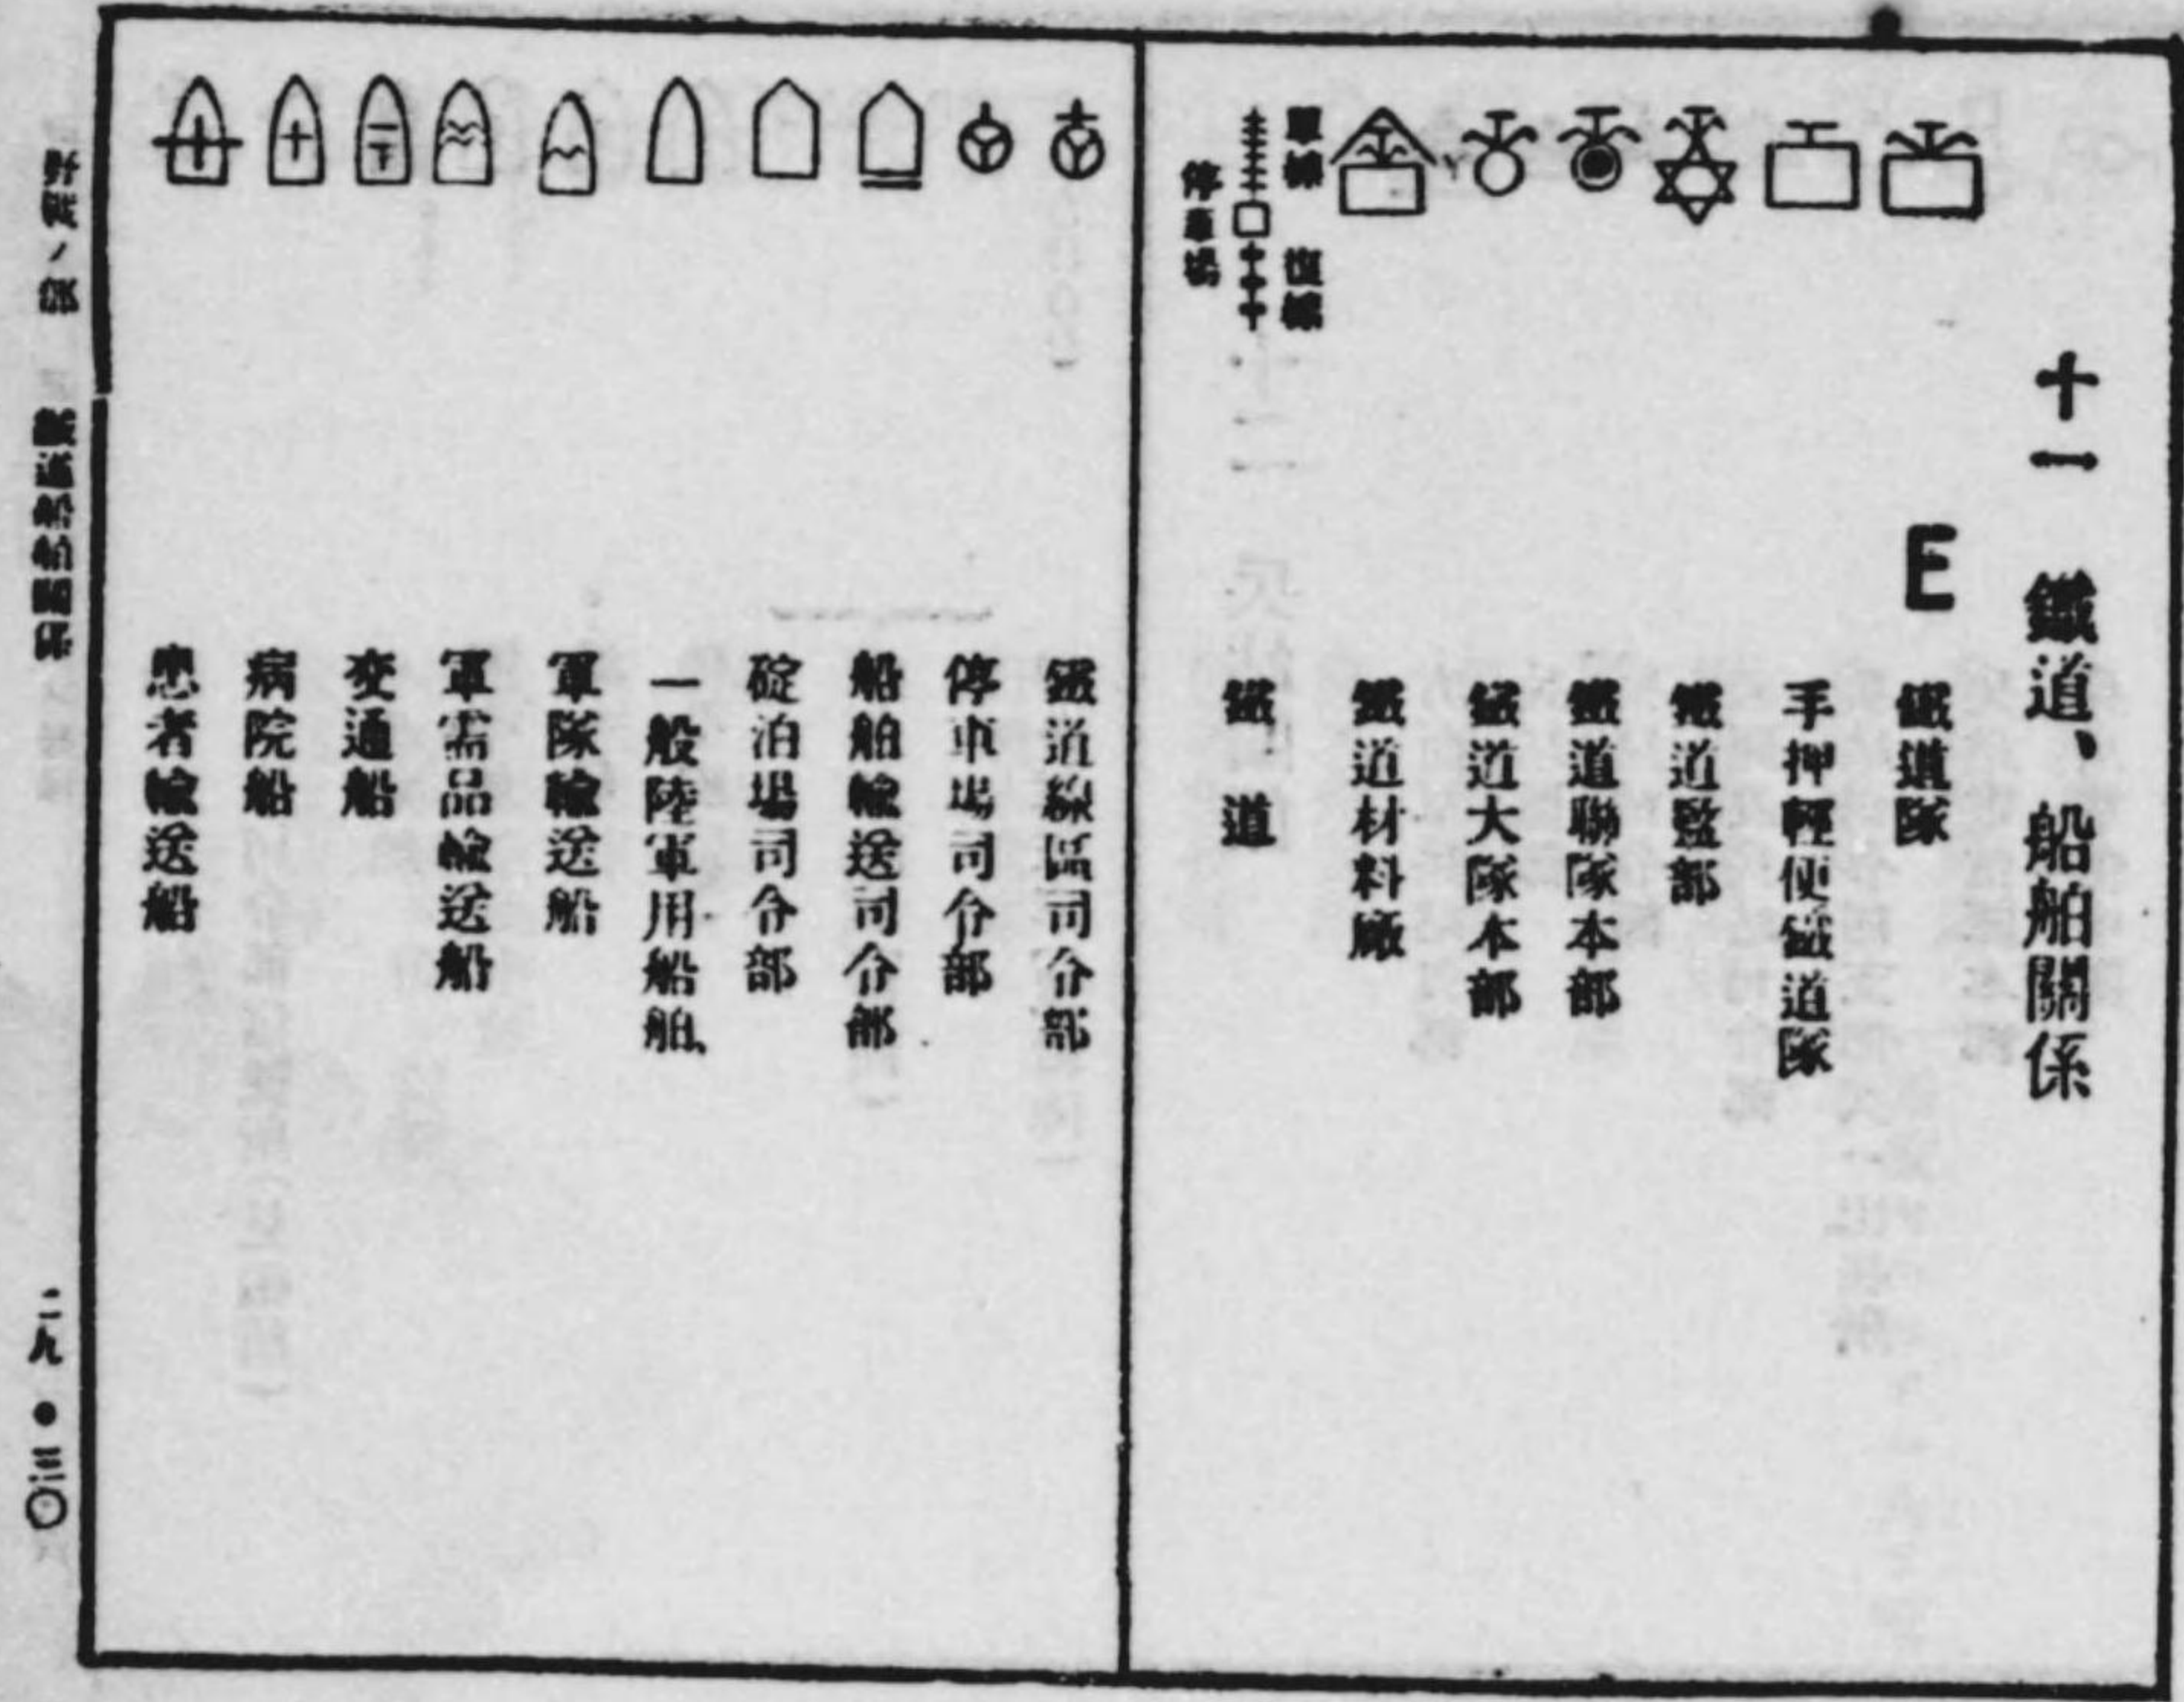 十一 鐵道、船舶關係
E 鐵道隊
手押輕便鐵道隊
鐵道監部
鐵道聯隊本部
鐵道大隊本部
鐵道材料廠
單線 復線
停車場
鐵道
鐵道線區司令部
停車場司令部
船舶輸送司令部
碇泊場司令部
一般陸軍用船舶、
軍隊輸送船
軍需品輸送船
交通船
病院船
患者輸送船
二九●三〇